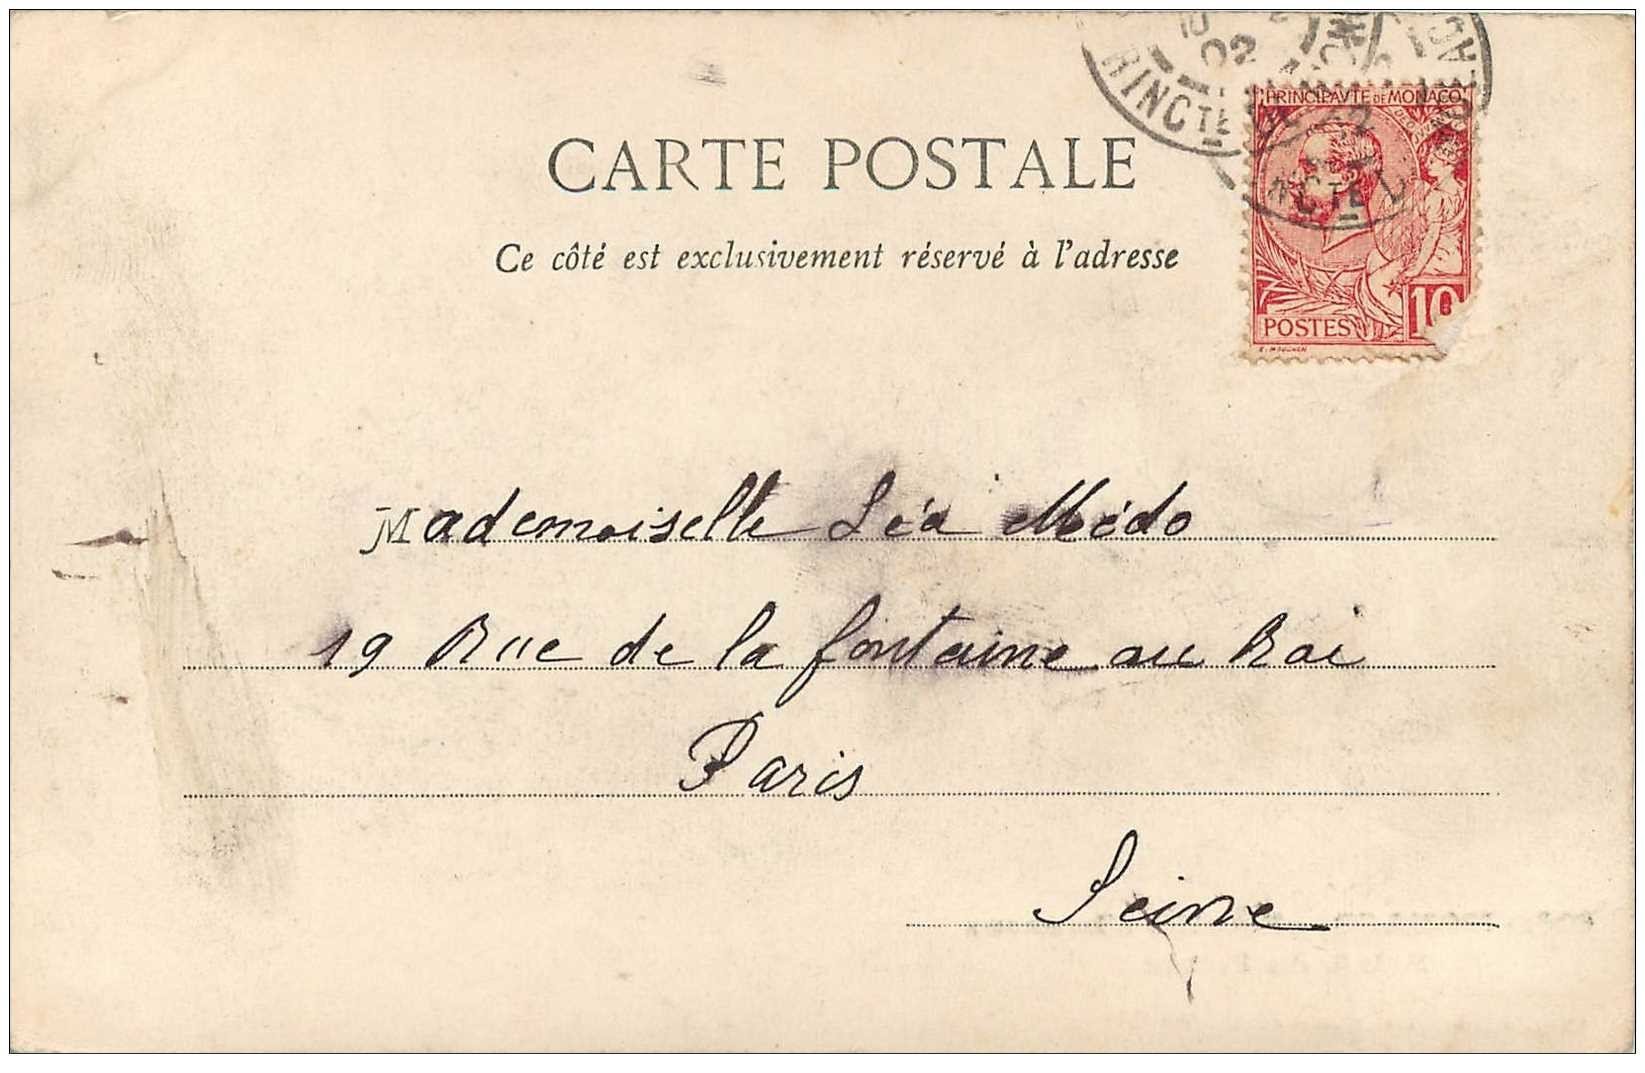 02
PRINCIPAUTE DE MONACO
CARTE POSTALE
Ce côté est exclusivement réservé à l'adresse
POSTES 10
Mademoiselle Léa Médo
19 Rue de la fontaine au Roi
Paris
Seine